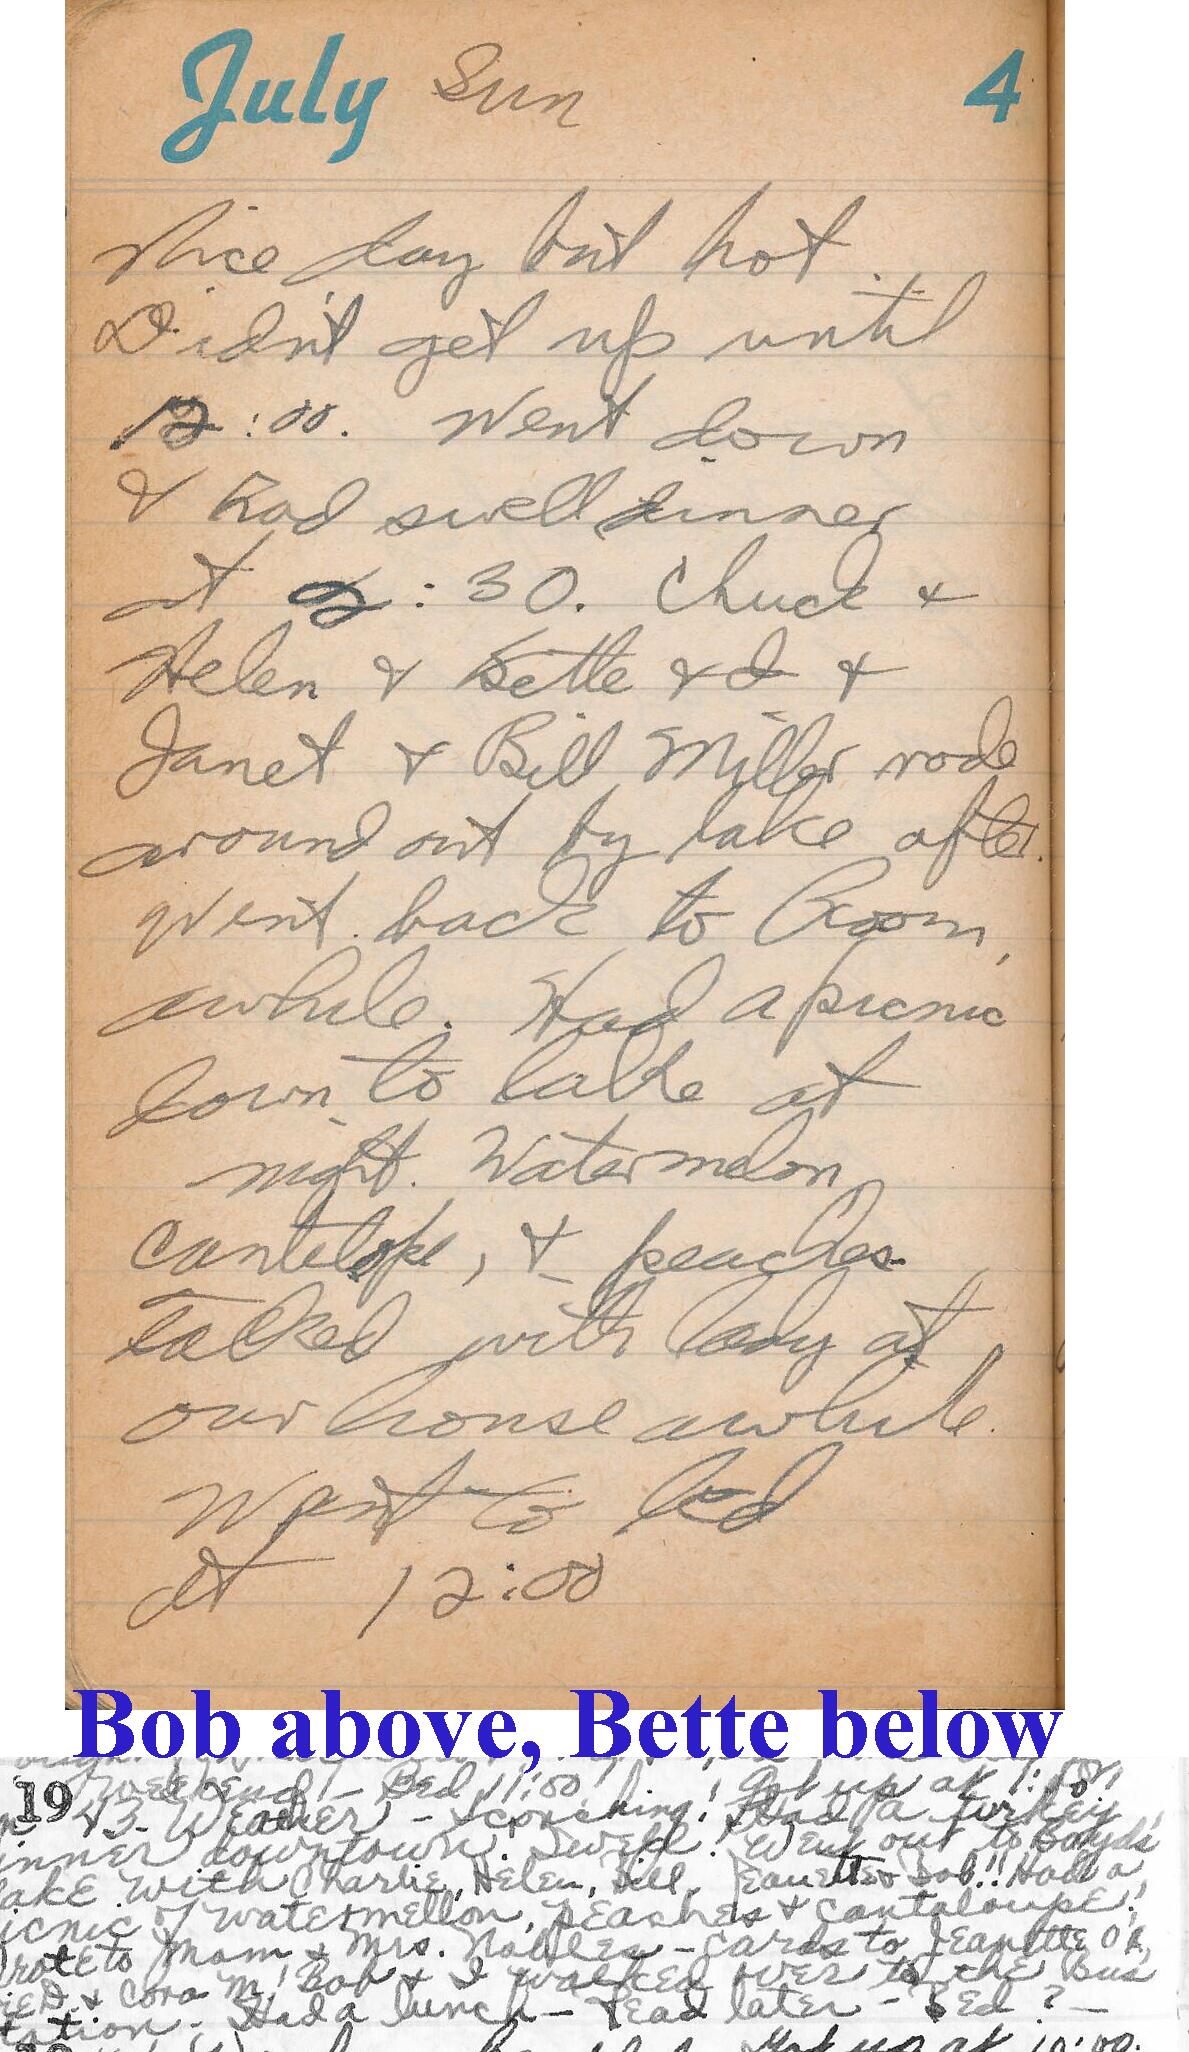 July Sun 4
Nice day but hot.
Didn't get up until
12:00. Went down
& had swell dinner
at 2:30. Chuck &
Helen & Bette & I &
Janet & Bill Miller rode
around out by lake after.
Went back to Room,
awhile. Had a picnic
down to lake at
night. Watermelon,
cantelope, & peaches.
Talked with lady at
our house awhile.
Went to bed
at 12:00
Bob above, Bette below
Weekend! - Bed 11:00!
1943 - Weather - Scorching! Got up at 1:00! Had a turkey
inner downtown. Swell! Went out to Boyds
ake with Charlie, Helen, Bill, Jeanette & Bob!! Had a
icnic of watermellon, peaches & cantaloupe!
rote to Mom & Mrs. Nobles - cards to Jeanette O'R,
& Cora M! Bob & I walked over to the bus
tation. Had a lunch - Read later - Bed ? -
Got up at 10:00.